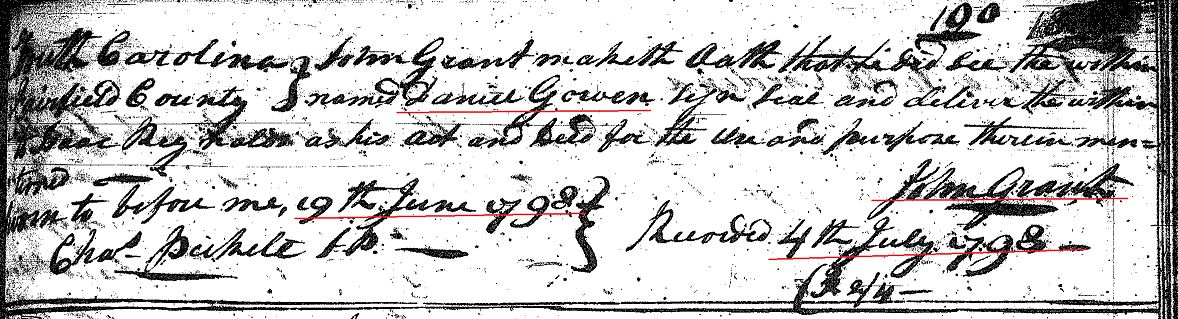 190
South Carolina } John Grant maketh Oath that he did see the within
Fairfield County } named Daniel Gowen sign seal and deliver the within
to Isaac Reynolds as his act and deed for the Use and purpose therein men=
tioned
Sworn to before me, 19th June 1798 } John Grant
Chas Pickett J.P. Recorded 4th July 1798